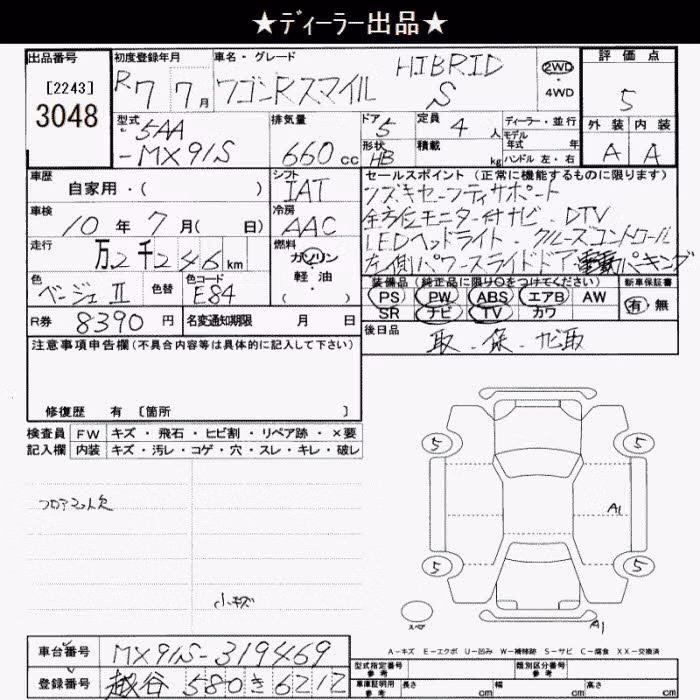 ★ディーラー出品★
出品番号
[2243]
3048
初度登録年月
R7 7月
車名・グレード
ワゴンRスマイル HIBRID S
2WD
・
4WD
評価点
5
外装 内装
A A
型式
5AA
-MX91S
排気量
660cc
ドア 5
形状 HB
定員 4人
積載 kg
ディーラー・並行
モデル年式 年
ハンドル 左・右
車歴
自家用・( )
シフト
IAT
車検
10年7月( 日)
冷房
AAC
走行
万2千246km
燃料
ガソリン
・
軽油
( )
色
ベージュⅡ
色替
色コード
E84
セールスポイント(正常に機能するものに限ります)
スズキセーフティサポート
全方位モニター付ナビ・DTV
LEDヘッドライト・クルーズコントロール
左側パワースライドドア 電動パーキング
装備品(純正品に限り○をつけてください)
PS PW ABS エアB AW
SR ナビ TV カワ
新車保証書
有・無
R券 8390円
名変通知期限 月 日
後日品
取.保.ナビ取
注意事項申告欄(不具合内容等は具体的に記入して下さい)
修復歴 有[箇所 ]
検査員 FW キズ・飛石・ヒビ割・リペア跡・×要
記入欄 内装 キズ・汚レ・コゲ・穴・スレ・キレ・破レ
フロアマット欠
小キズ
5 5
A1
5 5
スペア
A1
A-キズ E-エクボ U-凹み W-補修跡 S-サビ C-腐食 XX-交換済
車台番号 MX91S-319469
登録番号 越谷 580 き 6212
型式指定番号 参考
類別区分番号 参考
車庫証明用 参考 長さ cm 幅 cm 高さ cm